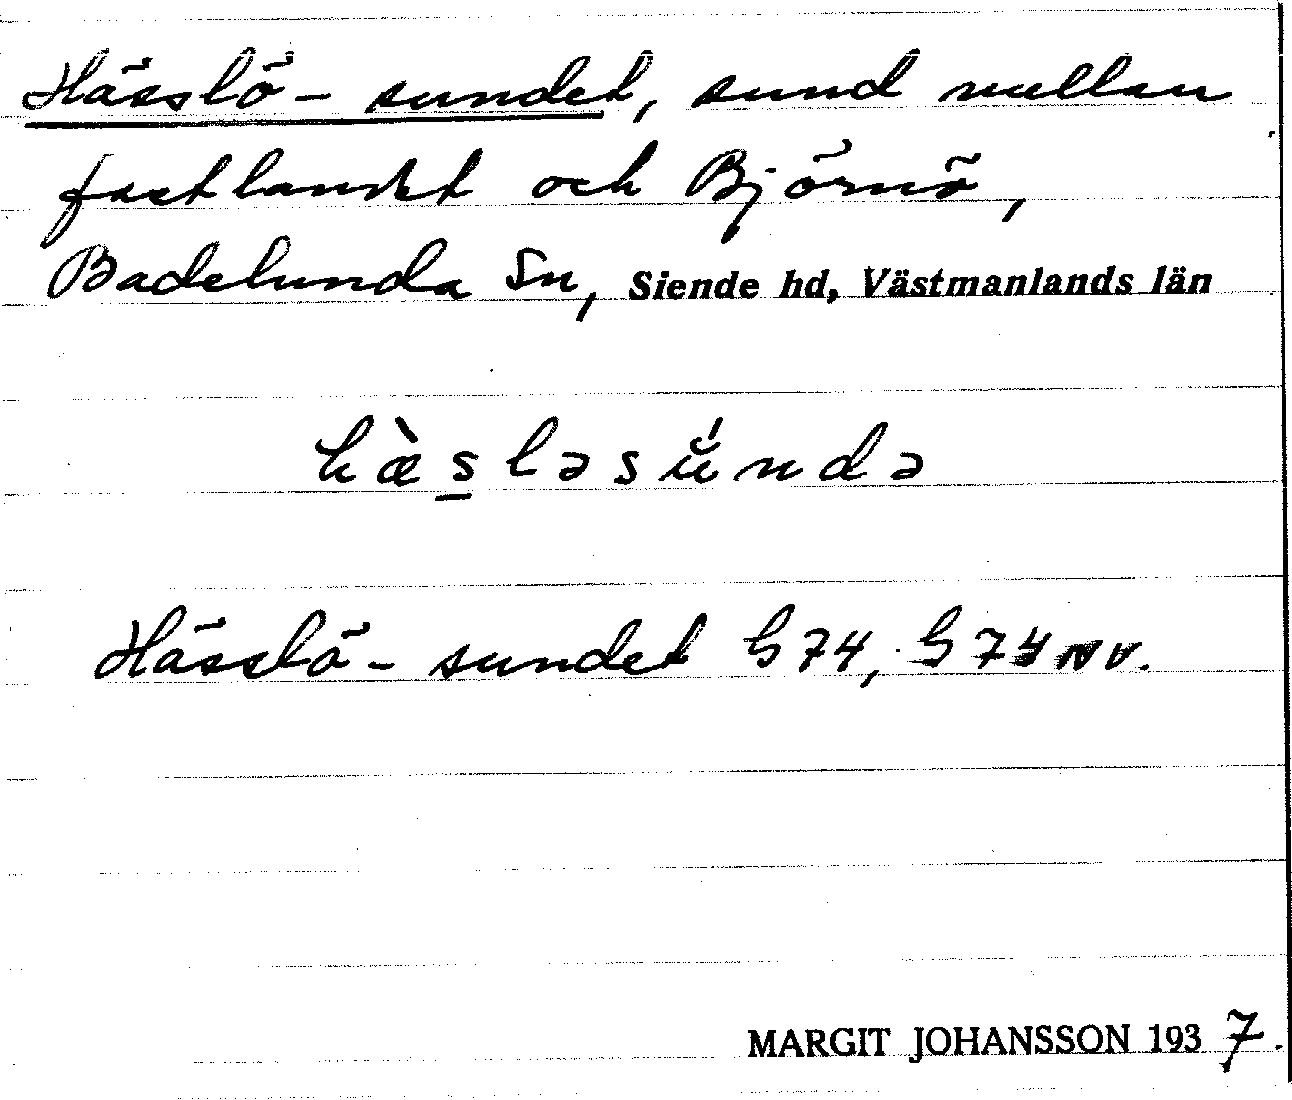 Hässlö-sundet, sund mellan
fastlandet och Björnö,
Badelunda Sn, Siende hd, Västmanlands län
hæ̀s̱ləsú̆ndə
Hässlö-sundet G 74, G 74 NV.
MARGIT JOHANSSON 1937.